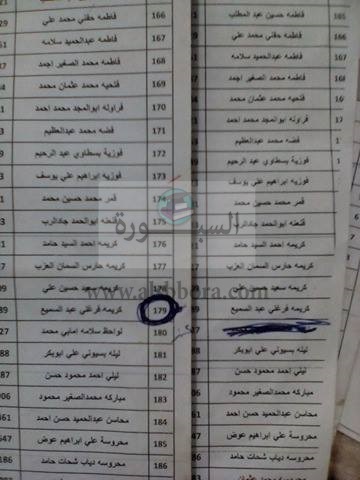 166 فاطمه حفني محمد علي
167 فاطمه عبدالحميد سلامه
168 فاطمه محمد الصغير احمد
169 فتحيه محمد عثمان محمد
170 فراوله ابوالمجد محمد احمد
171 فضه محمد عبدالعظيم
172 فوزية بسطاوي عبد الرحيم
173 فوزيه ابراهيم علي يوسف
174 قمر محمد حسين محمد
175 قنعنه ابوالحمد جادالرب
176 كريمه احمد السيد حامد
177 كريمه حارس السمان العزب
178 كريمه سعيد حسين علي
179 كريمه فرغلي عبد السميع
180 لواحظ سلامه إمابي محمد
181 ليله بسيوني علي ابوبكر
182 ليلي احمد محمود حسن
183 مباركه محمدالصغير محمود
184 محاسن عبدالحميد حسن احمد
185 محروسة علي ابراهيم عوض
186 محروسه دياب شحات حامد
165 فاطمه حسين عبد المطلب
فاطمه حفني محمد علي
فاطمه عبدالحميد سلامه
فاطمه محمد الصغير احمد
فتحيه محمد عثمان محمد
فراوله ابوالمجد محمد احمد
فضه محمد عبدالعظيم
فوزية بسطاوي عبد الرحيم
فوزيه ابراهيم علي يوسف
قمر محمد حسين محمد
قنعنه ابوالحمد جادالرب
كريمه احمد السيد حامد
كريمه حارس السمان العزب
كريمه سعيد حسين علي
كريمه فرغلي عبد السميع
ليله بسيوني علي ابوبكر
ليلي احمد محمود حسن
مباركه محمدالصغير محمود
محاسن عبدالحميد حسن احمد
محروسة علي ابراهيم عوض
محروسه دياب شحات حامد
السبورة